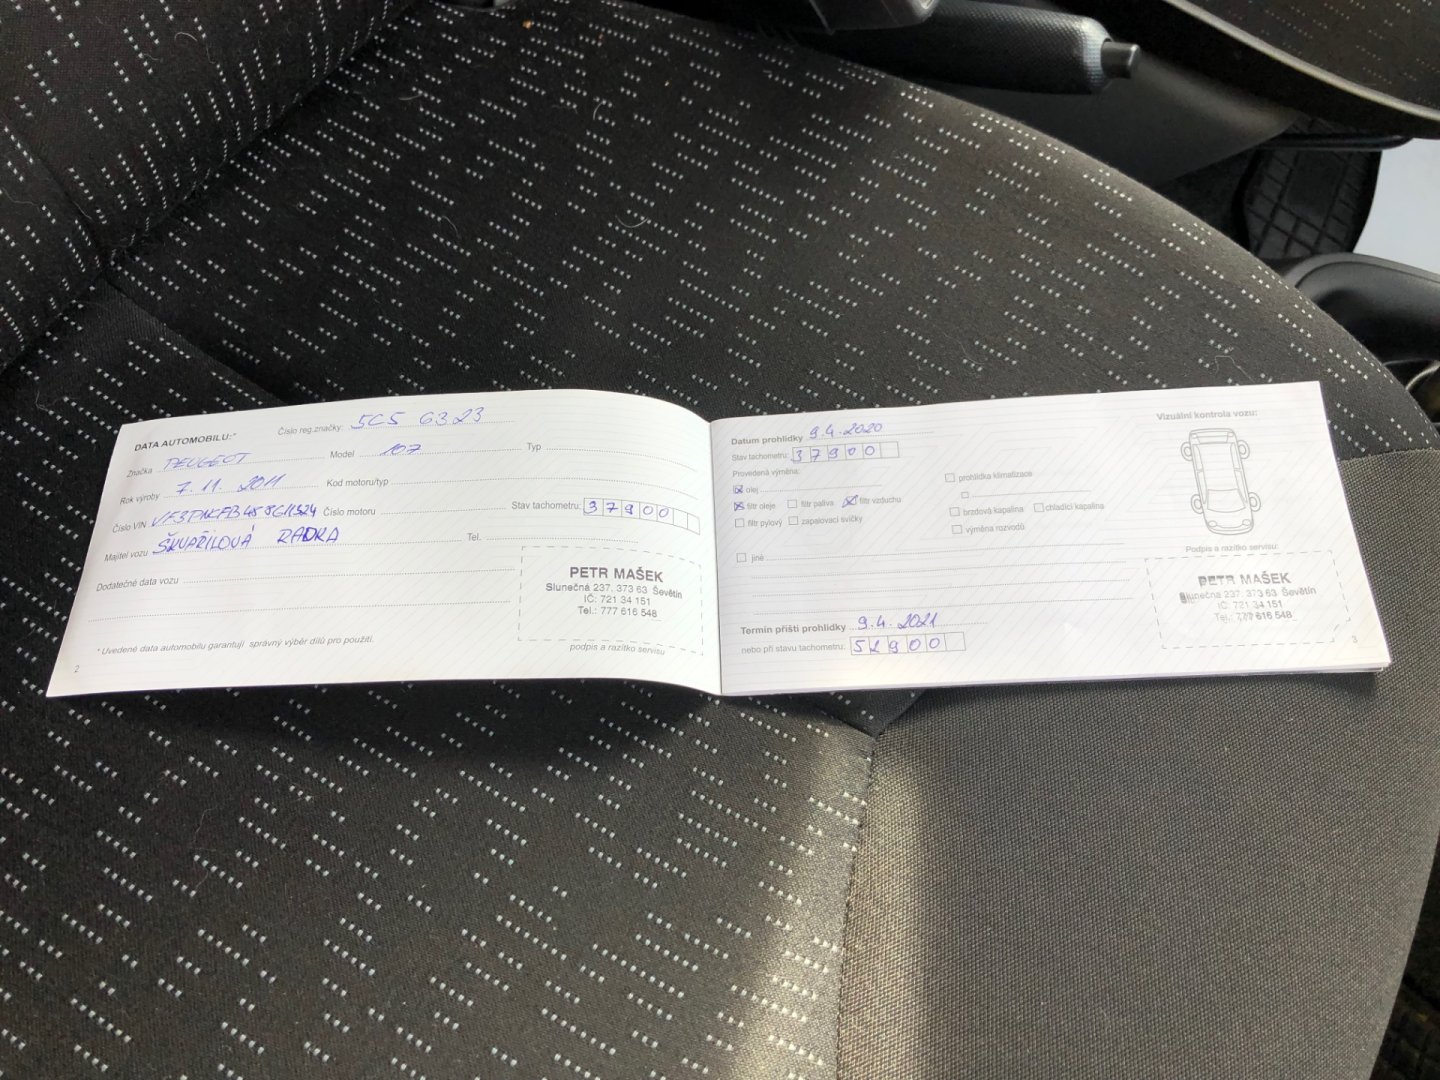 DATA AUTOMOBILU:*
Číslo reg.značky: 5C5 6323
Značka PEUGEOT Model 107 Typ
Rok výroby 7.11.2011 Kod motoru/typ
Číslo VIN Číslo motoru Stav tachometru: 37900
Majitel vozu ŠKVAŘILOVÁ RADKA Tel.
Dodatečné data vozu
PETR MAŠEK
Slunečná 237, 373 63 Ševětín
IČ: 721 34 151
Tel.: 777 616 548
* Uvedené data automobilu garantují správný výběr dílů pro použití.
podpis a razítko servisu
2
Datum prohlídky 9.4.2020
Stav tachometru: 37900
Provedená výměna:
olej
filtr oleje filtr paliva filtr vzduchu
filtr pylový zapalovací svíčky
prohlídka klimatizace
brzdová kapalina chladící kapalina
výměna rozvodů
jiné
Termín příští prohlídky 9.4.2021
nebo při stavu tachometru: 52900
Vizuální kontrola vozu:
Podpis a razítko servisu:
PETR MAŠEK
Slunečná 237, 373 63 Ševětín
IČ: 721 34 151
Tel.: 777 616 548
3